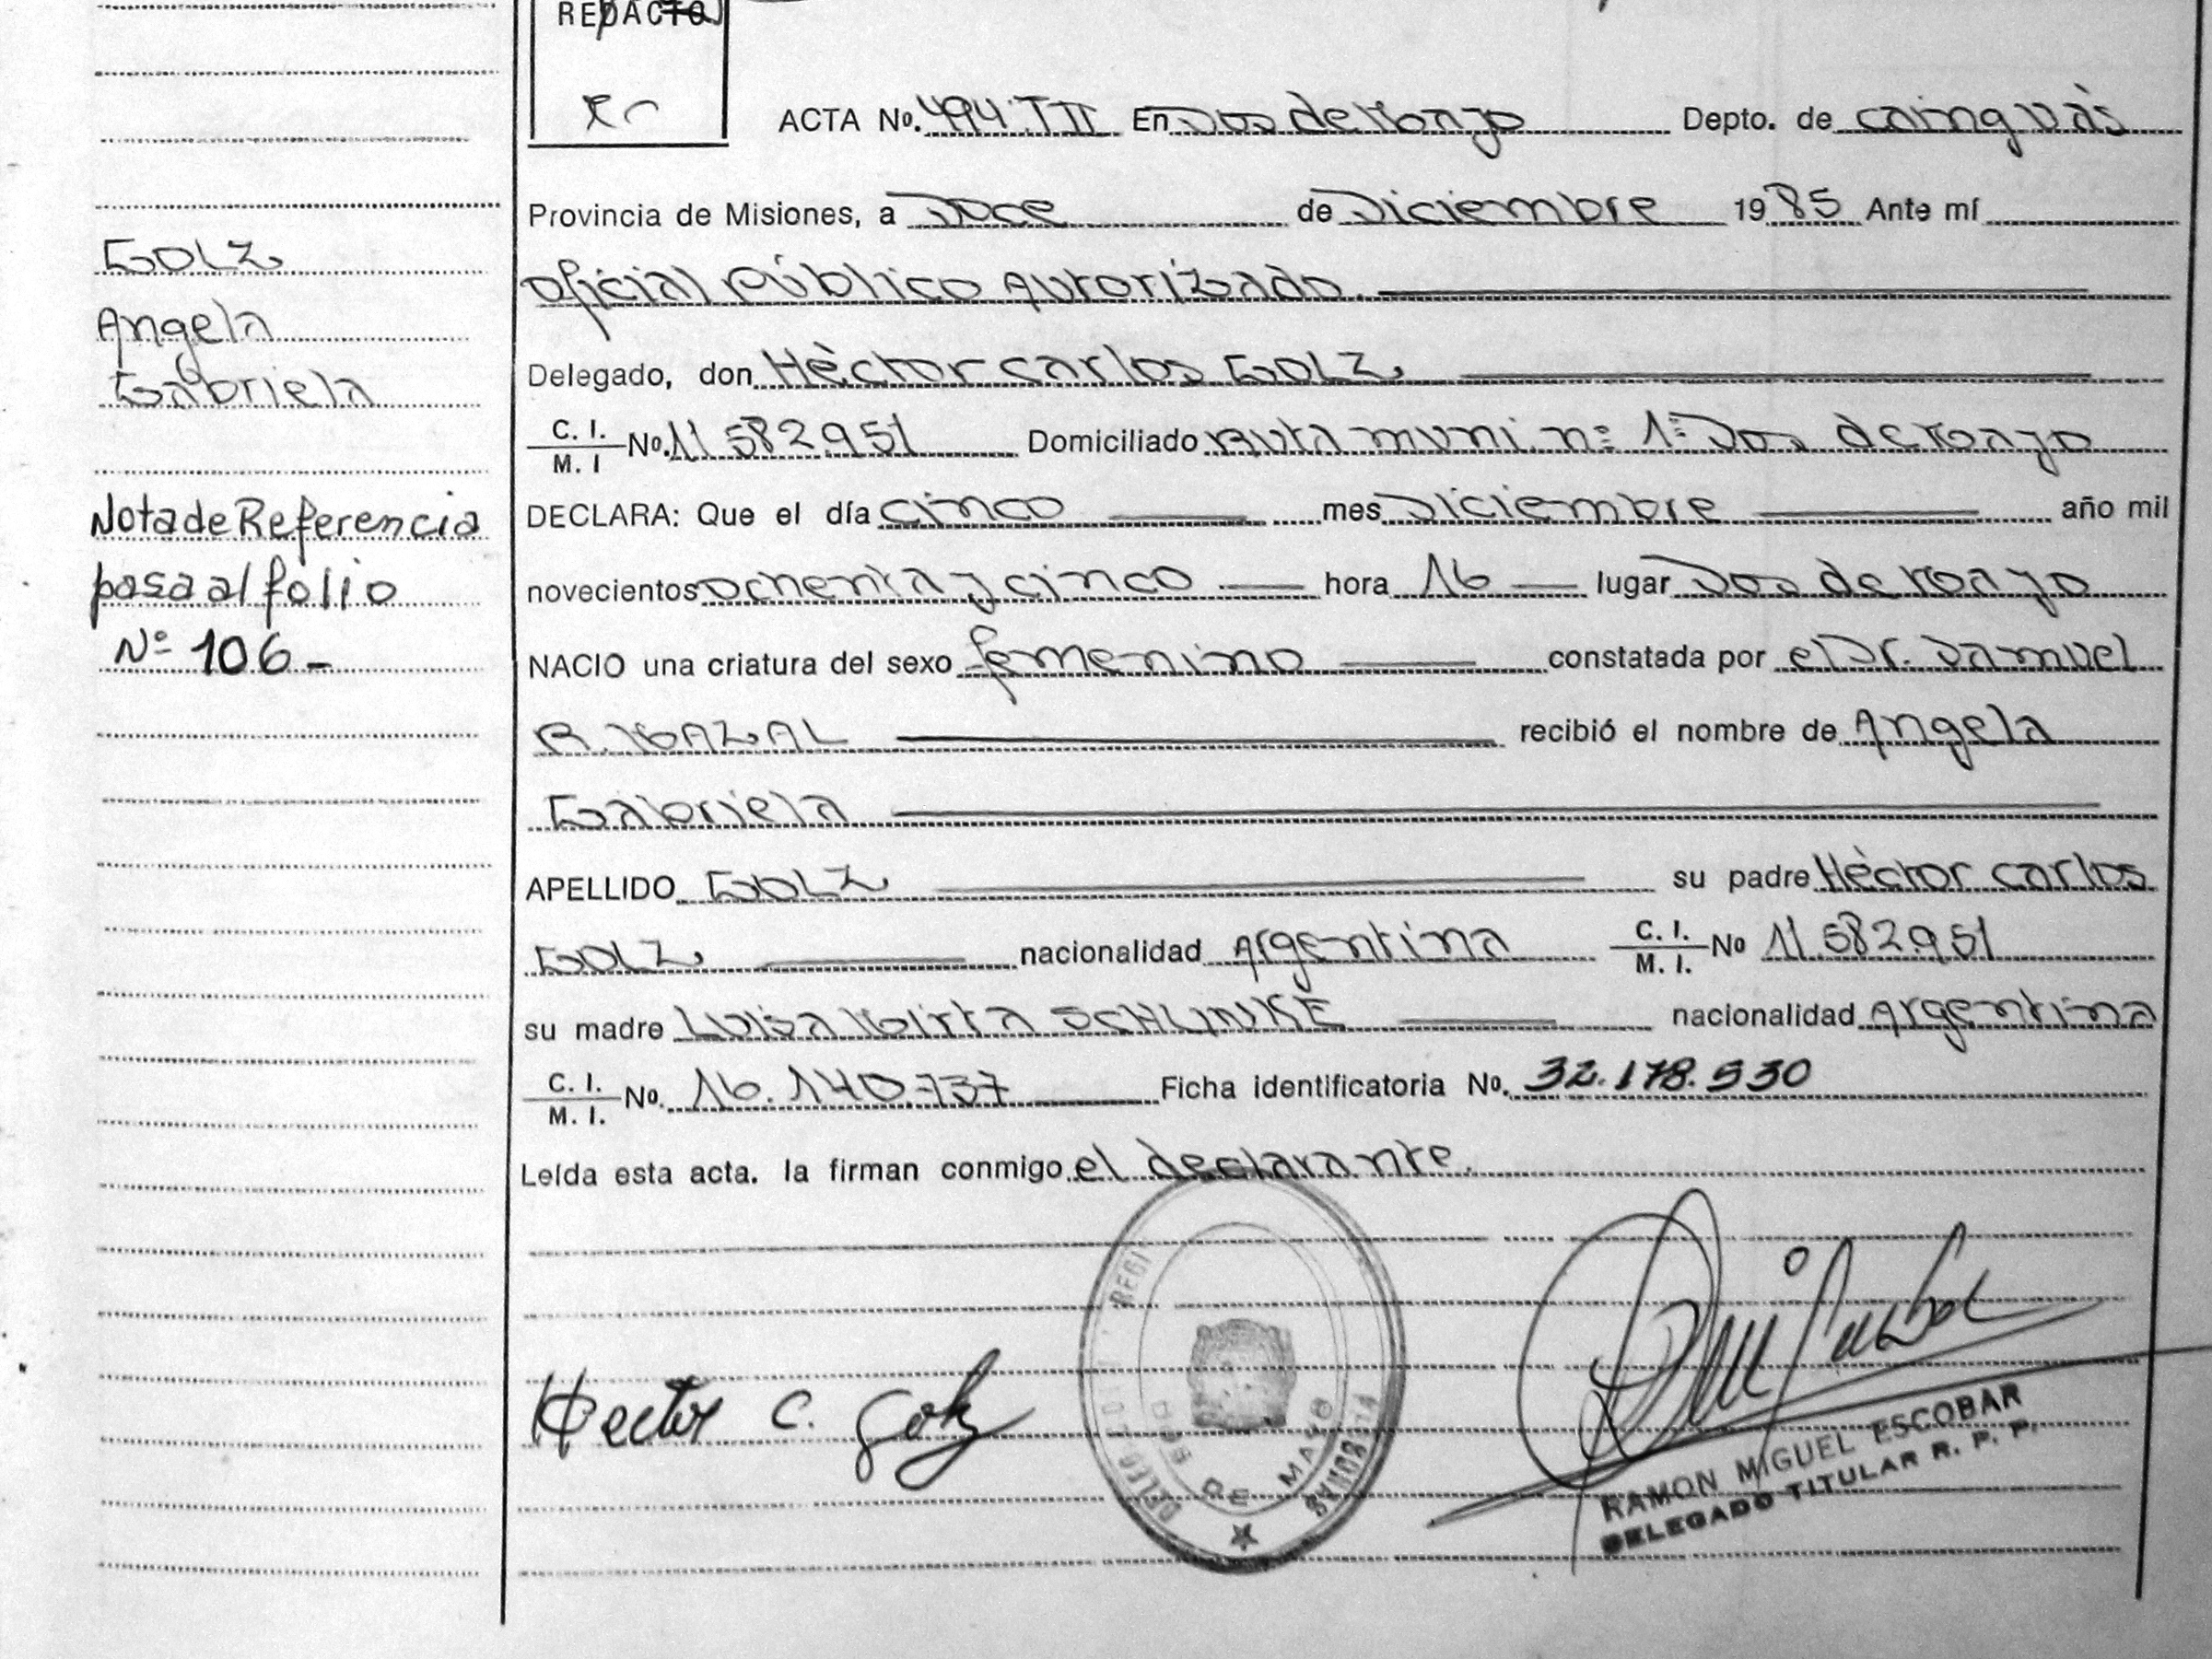 REDACTO
ACTA No. 494.TII En Dos de Mayo Depto. de cainguàs
Provincia de Misiones, a Doce de Diciembre 1985 Ante mí
oficial Público Autorizado.
GOLZ
Angela
Delegado, don Hèctor carlos GOLZ
Gabriela
C. I.
M. I No. 11.582.951 Domiciliado Ruta muni. nº 1º Dos de Mayo
Nota de Referencia
DECLARA: Que el día cinco mes Diciembre año mil
pasa al folio
novecientos ochenta y cinco hora 16 lugar Dos de Mayo
Nº 106-
NACIO una criatura del sexo femenino constatada por el Dr. Samuel
R. recibió el nombre de Angela
Gabriela
APELLIDO GOLZ su padre Hèctor carlos
GOLZ nacionalidad Argentina C. I.
M. I. No 11.582.951
su madre Luisa Mirta SCHLINKE nacionalidad Argentina
C. I.
M. I. No. 16.140.737 Ficha identificatoria No. 32.178.530
Leída esta acta. la firman conmigo el declarante.
REGI
DOS DE MAYO
Hector C. Golz
RAMON MIGUEL ESCOBAR
DELEGADO TITULAR R. P. P.